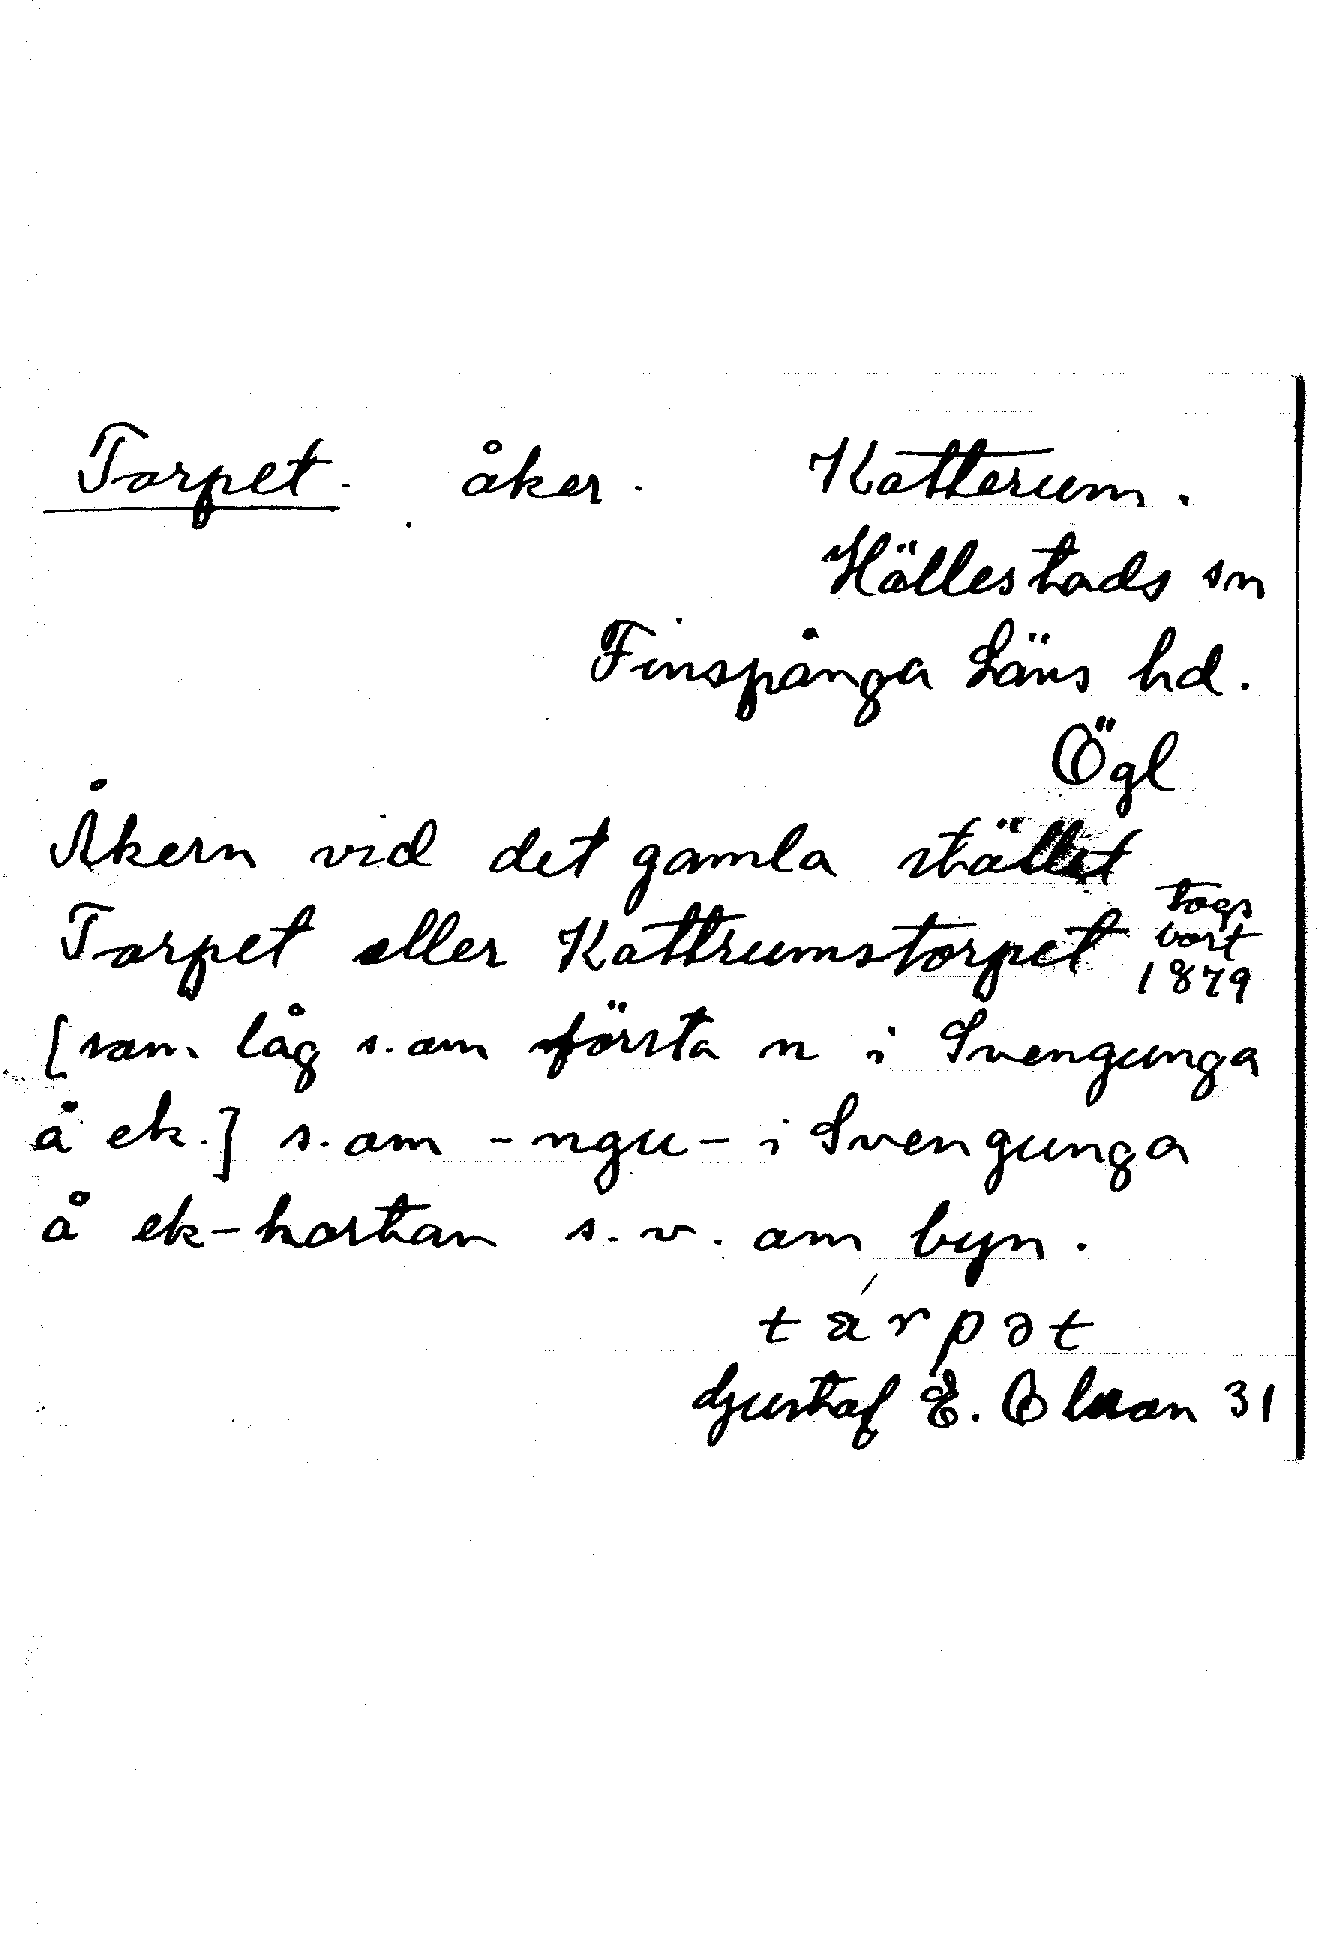 Torpet. åker. Katterum.
Hällestads sn
Finspånga Läns hd.
Ögl
Åkern vid det gamla stället
Torpet eller Kattrumstorpet togs bort 1879
[som låg s. om första n i Svengunga
å ek.] s. om -ngu- i Svengunga
å ek-kartan s.v. om byn.
tárpət
Gustaf E. Olsson 31